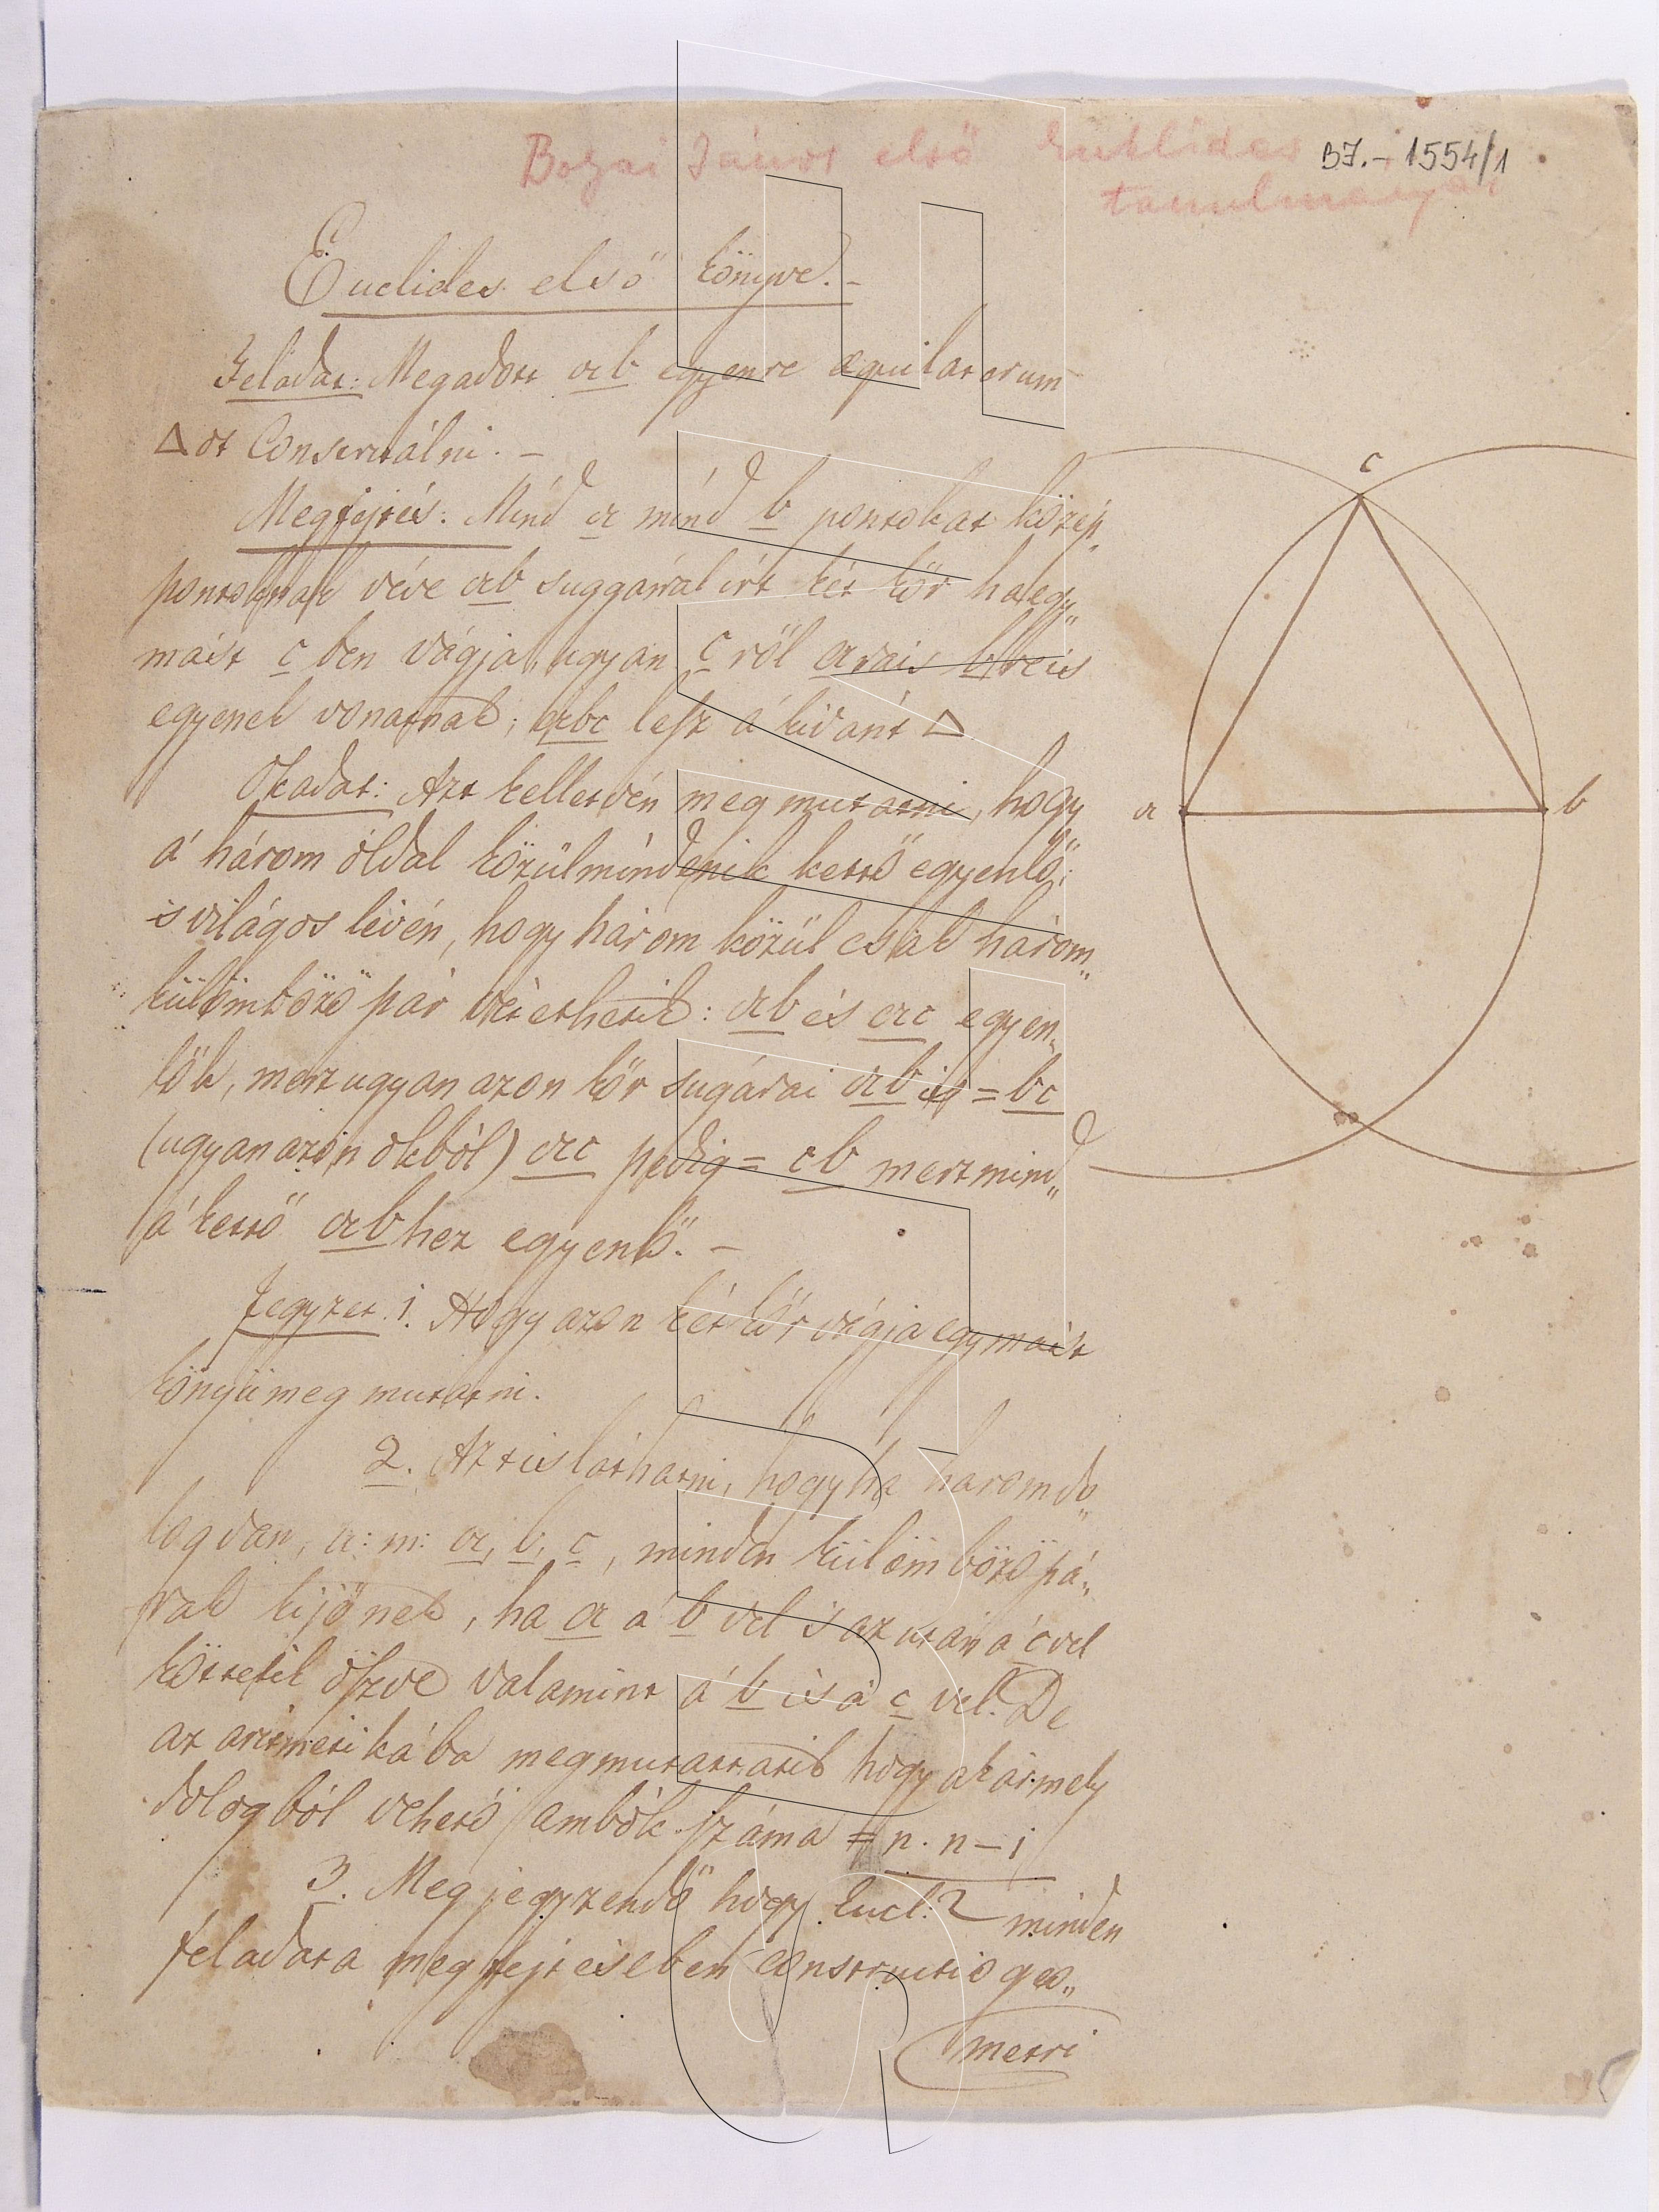 Bolyai János első Euklides BJ.-1554/1
tanulmányai
Euclides első könyve. -
Feladat: Megadott ab egyenre æquilaterum
Δot Construálni. -
Megfejtés: Mind a mind b pontokat közép„
pontoknak véve ab suggárral írt két kör ha egy„
mást c ben vágja, ugyan c ről a ra is b re is
egyenek vonatnak; abc lesz á kivánt Δ
Okadat: Azt kelletvén meg mutatni, hogy
á három óldal közülmindenik kettő egyenlő;
's világos lévén, hogy három közül csak három„
külömböző pár vétethetik: ab és ac egyen„
lök, mert ugyan azon kör sugárai ab is = bc
(ugyan azon okból) ac pedig = cb mert mind„
á kettő ab hez egyenlő. -
Jegyzet. 1. Hogy azon két kör vágja egymást
könyü meg mutatni.
2. Azt is láthatni, hogy ha három do„
logvan, u: m: a, b, c, minden külömböző pá„
rak kijőnek, ha a á b vel 's az után á c vel
köttetik öszve valamint á b is á c vel. De
az aritmetikába megmutattatik hogy akármely
dologból vehető ambók száma = n. n-1
3. Meg jegyzendő hogy Eucl: 2 minden
feladata megfejtésében constructio geo„
metri
a c b